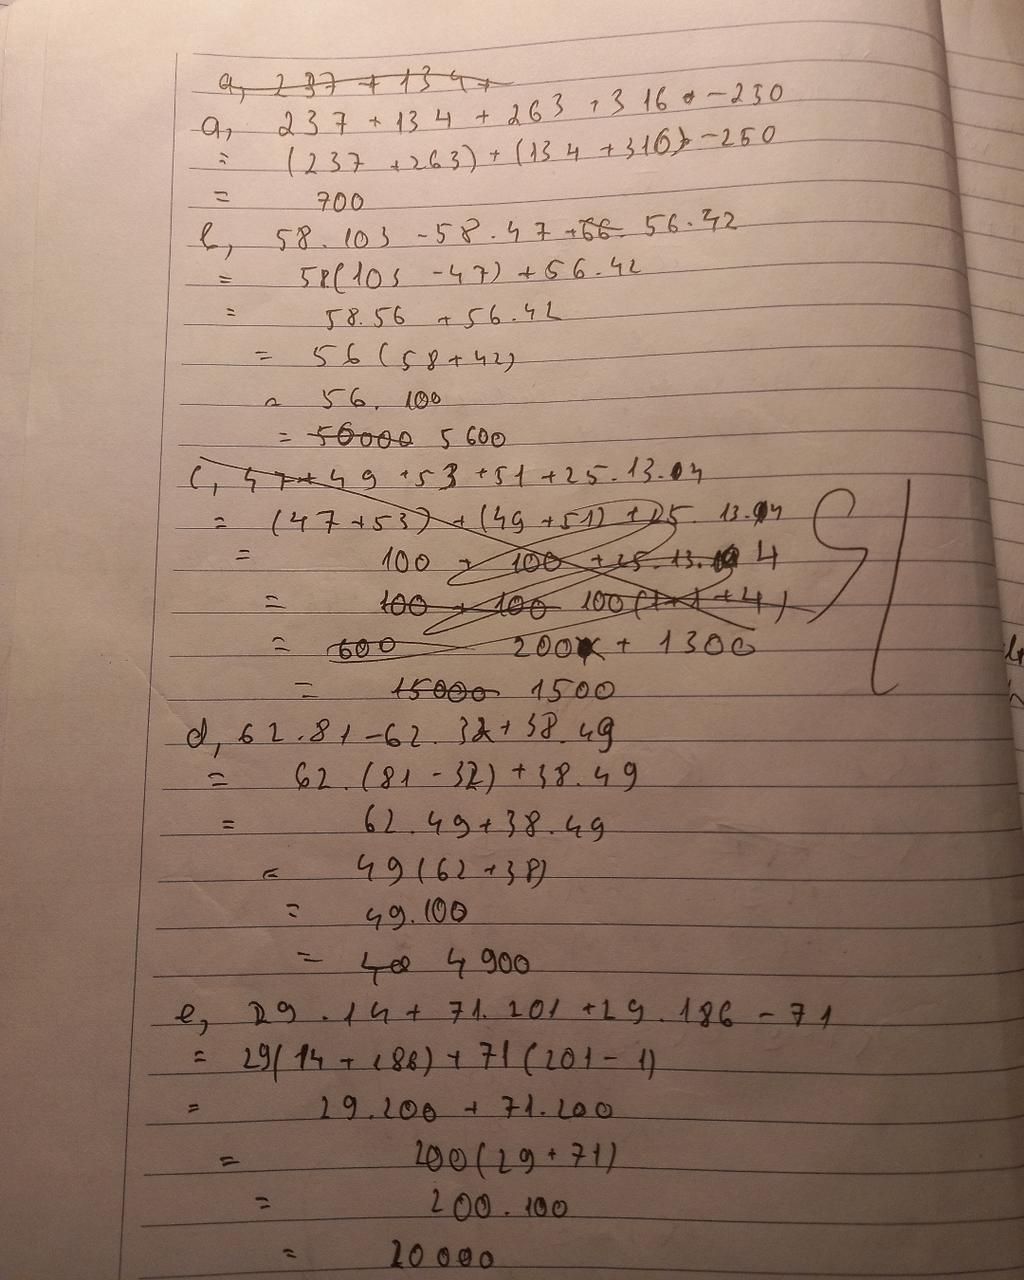 a, 237 + 134 +
a, 237 + 134 + 263 + 316 - 250
= (237 + 263) + (134 + 316) - 250
= 700
b, 58.103 - 58.47 + 56.42
= 58(103 - 47) + 56.42
= 58.56 + 56.42
= 56(58 + 42)
= 56.100
= 56000 5600
c, 47 + 49 + 53 + 51 + 25.13.4
= (47 + 53) + (49 + 51) + 25.13.4
= 100 + 100 + 25.13.4
= 100 + 100 100(1+1+4)
= 600 200 + 1300
= 15000 1500
d, 62.81 - 62.32 + 38.49
= 62.(81 - 32) + 38.49
= 62.49 + 38.49
= 49(62 + 38)
= 49.100
= 4900
e, 29.14 + 71.201 + 29.186 - 71
= 29(14 + 186) + 71(201 - 1)
= 29.200 + 71.200
= 200(29 + 71)
= 200.100
= 20000